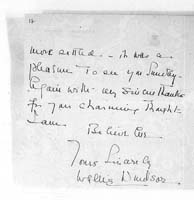 more settled – it was a
pleasure to see you Sunday.
Again with my sincere thanks
for your charming thought
I am.
Believe me
Yours Sincerely
Wallis Windsor